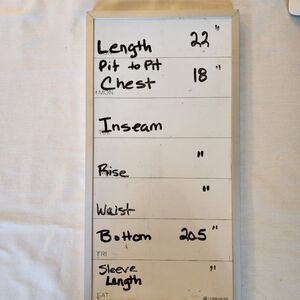 Length 22"
Pit to Pit
Chest 18"
MON
Inseam
"
Rise
"
Waist
Bottom 20.5"
FRI
Sleeve "
Length
SAT